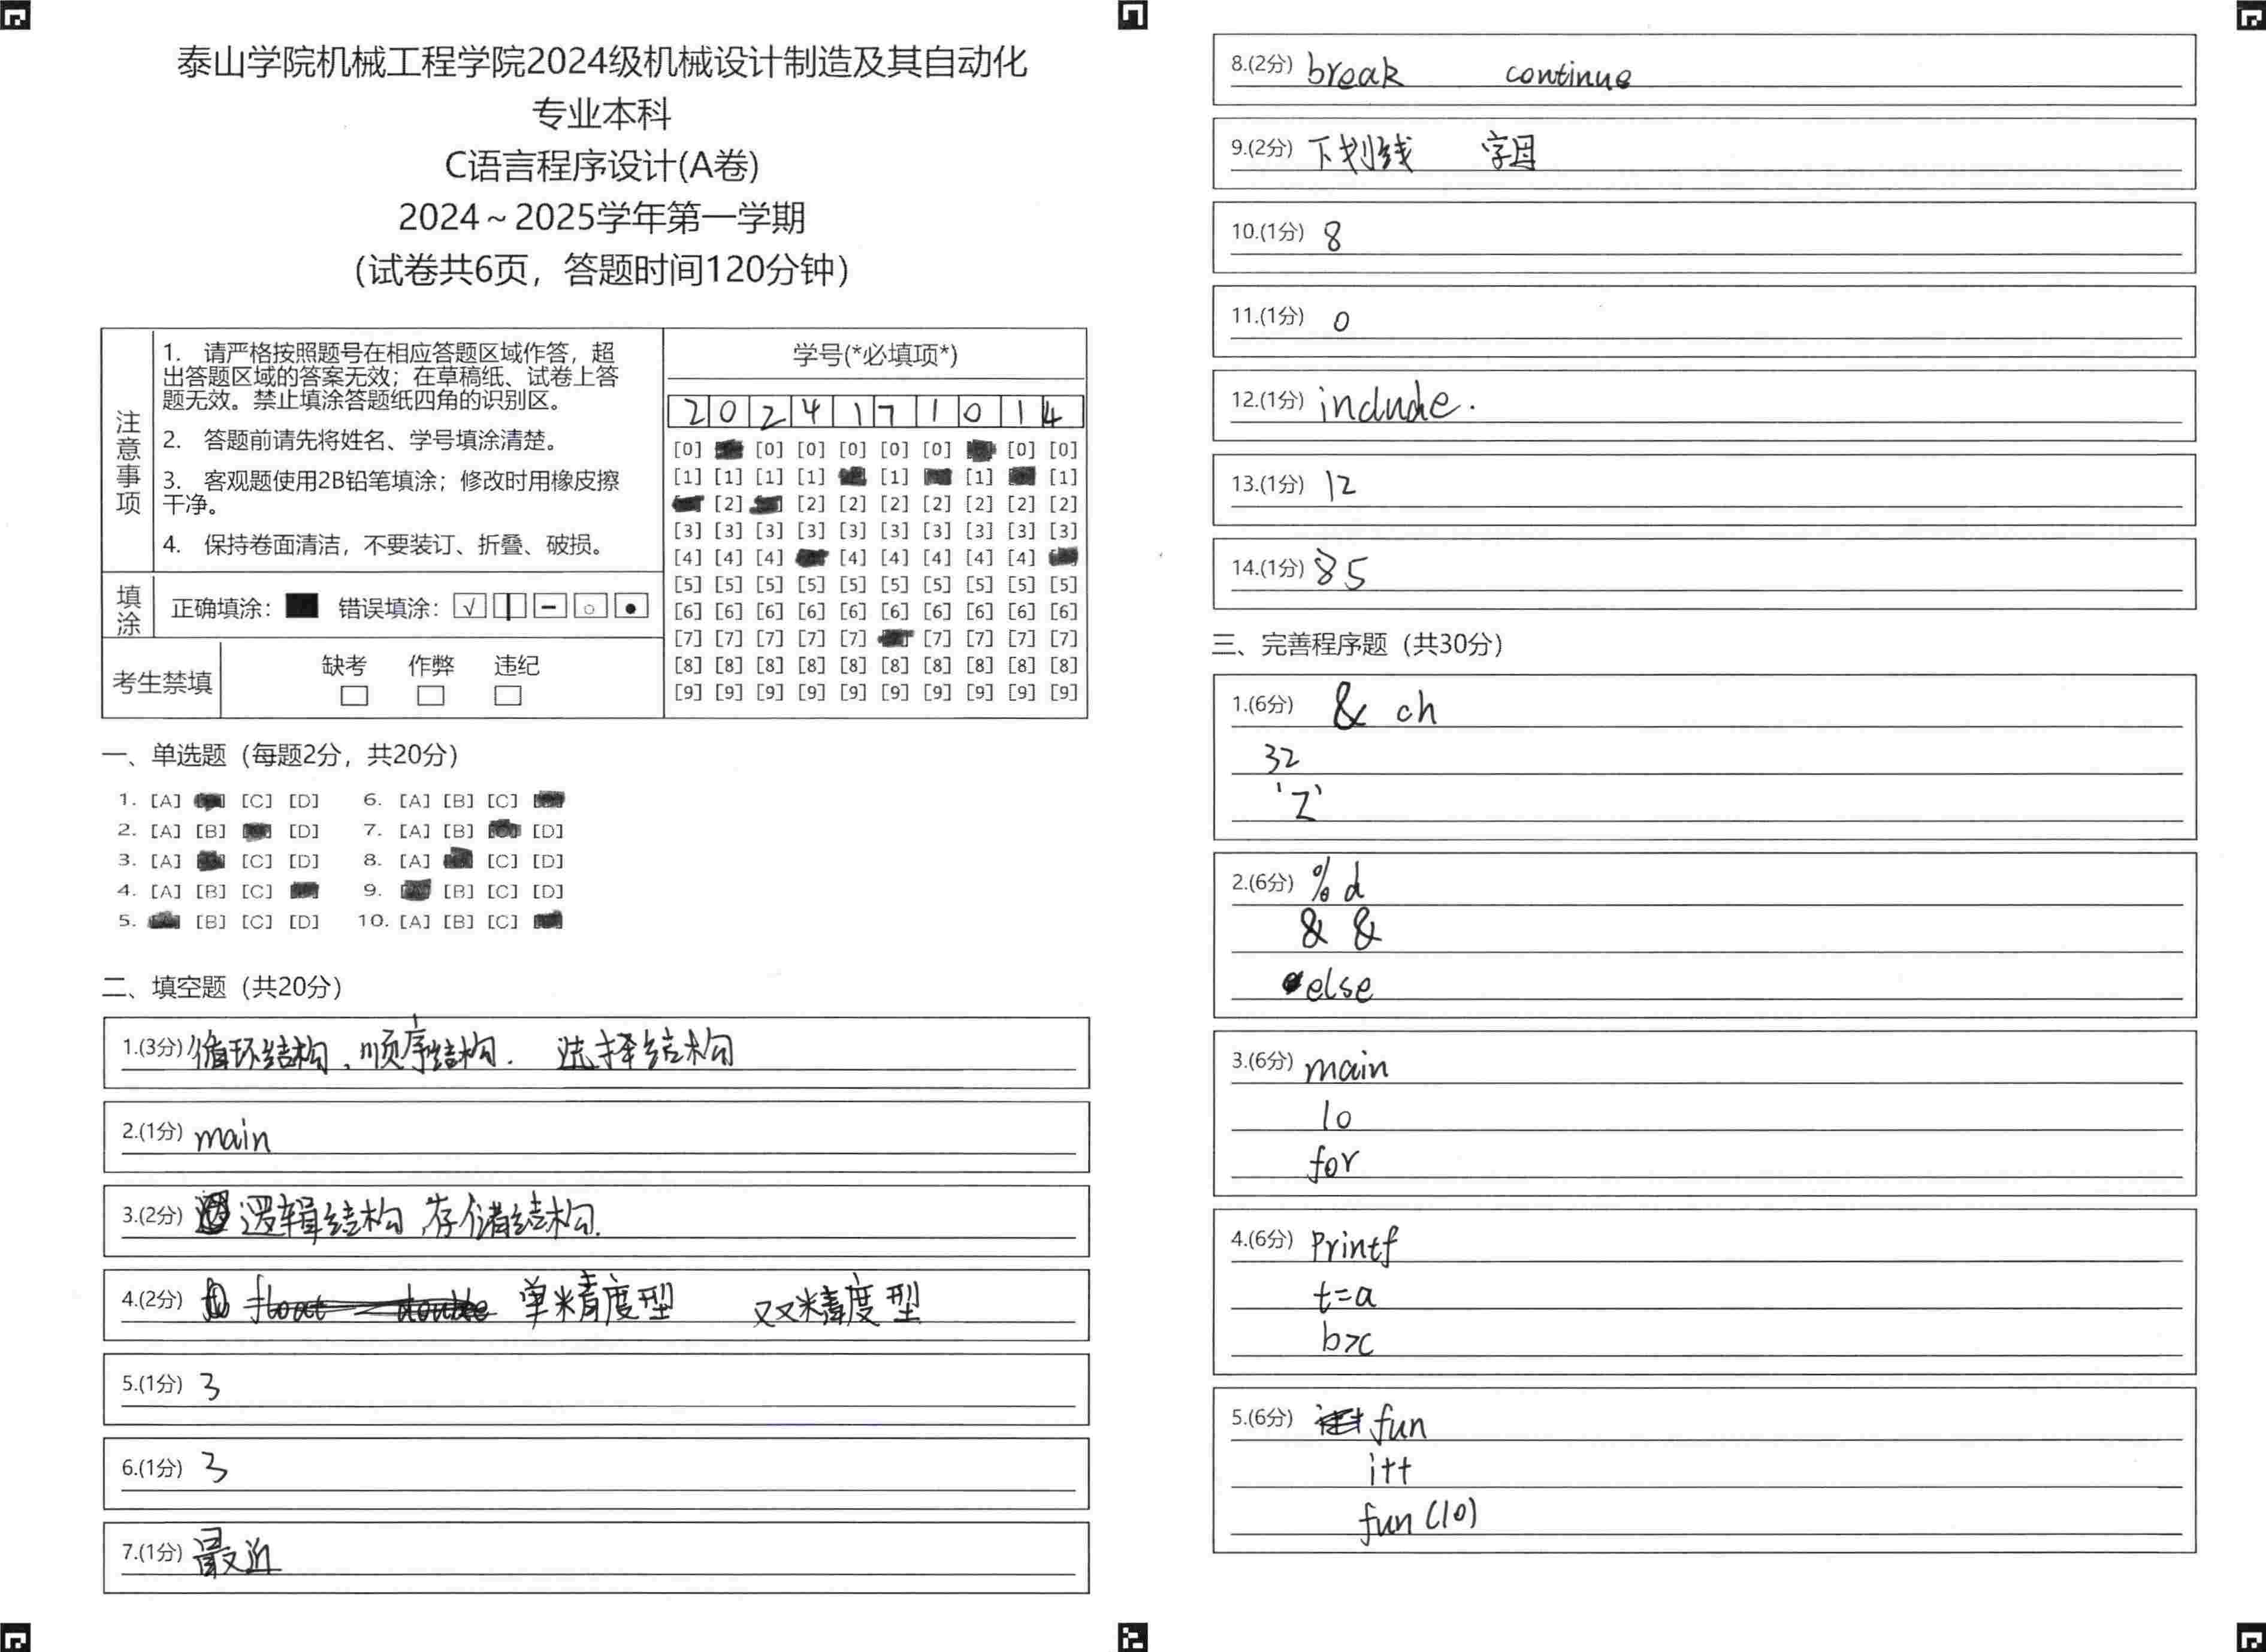 泰山学院机械工程学院2024级机械设计制造及其自动化
专业本科
C语言程序设计(A卷)
2024~2025学年第一学期
(试卷共6页，答题时间120分钟)
注意事项
1. 请严格按照题号在相应答题区域作答，超
出答题区域的答案无效；在草稿纸、试卷上答
题无效。禁止填涂答题纸四角的识别区。
2. 答题前请先将姓名、学号填涂清楚。
3. 客观题使用2B铅笔填涂；修改时用橡皮擦
干净。
4. 保持卷面清洁，不要装订、折叠、破损。
填涂
正确填涂： 错误填涂： √
考生禁填
缺考 作弊 违纪
学号(*必填项*)
2 0 2 4 1 7 1 0 1 4
[0] [0] [0] [0] [0] [0] [0] [0]
[1] [1] [1] [1] [1] [1] [1]
[2] [2] [2] [2] [2] [2] [2] [2]
[3] [3] [3] [3] [3] [3] [3] [3] [3] [3]
[4] [4] [4] [4] [4] [4] [4] [4]
[5] [5] [5] [5] [5] [5] [5] [5] [5] [5]
[6] [6] [6] [6] [6] [6] [6] [6] [6] [6]
[7] [7] [7] [7] [7] [7] [7] [7] [7]
[8] [8] [8] [8] [8] [8] [8] [8] [8] [8]
[9] [9] [9] [9] [9] [9] [9] [9] [9] [9]
一、单选题（每题2分，共20分）
1. [A] [C] [D] 6. [A] [B] [C]
2. [A] [B] [D] 7. [A] [B] [D]
3. [A] [C] [D] 8. [A] [C] [D]
4. [A] [B] [C] 9. [B] [C] [D]
5. [B] [C] [D] 10. [A] [B] [C]
二、填空题（共20分）
1.(3分) 循环结构、顺序结构. 选择结构
2.(1分) main
3.(2分) 逻辑结构 存储结构.
4.(2分) float double 单精度型 双精度型
5.(1分) 3
6.(1分) 3
7.(1分) 最近
8.(2分) break continue
9.(2分) 下划线 字母
10.(1分) 8
11.(1分) 0
12.(1分) include.
13.(1分) 12
14.(1分) 85
三、完善程序题（共30分）
1.(6分) & ch
32
'Z'
2.(6分) %d
& &
else
3.(6分) main
10
for
4.(6分) printf
t=a
b>c
5.(6分) fun
i++
fun(10)